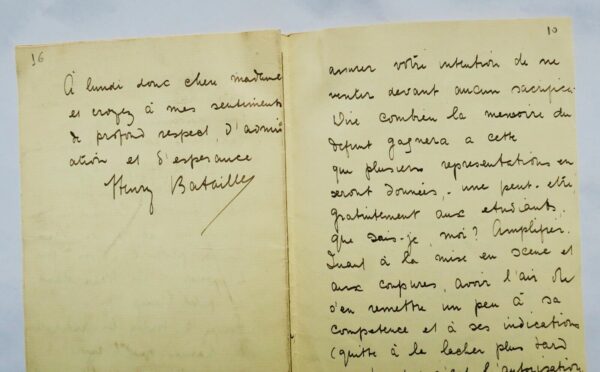 16
À lundi donc chère madame
et croyez à mes sentiments
de profond respect, d'admir
ation et d'espérance
Henry Bataille
10
assurer votre intention de ne
reculer devant aucun sacrifice.
Dire combien la memoire du
defunt gagnera a cette
que plusieurs representations en
seront données, - une peut-etre
gratuitement aux etudiants,
que sais-je, moi? Amplifier.
Quant à la mise en scene et
aux coupures, avoir l'air de
s'en remettre un peu à sa
competence et à ses indications
(quitte à le lacher plus tard
l'autorisation